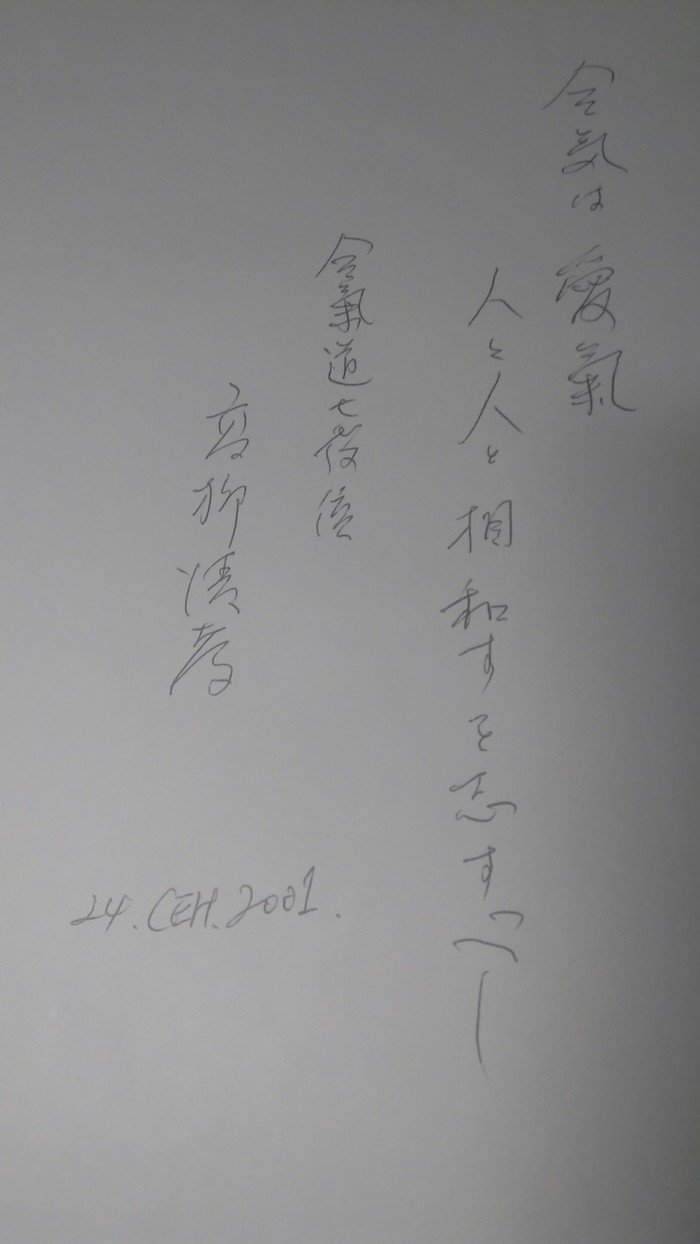 合気は愛氣
人と人と相和すを志すべし
合氣道七段位
高柳清孝
24.СЕН.2001.